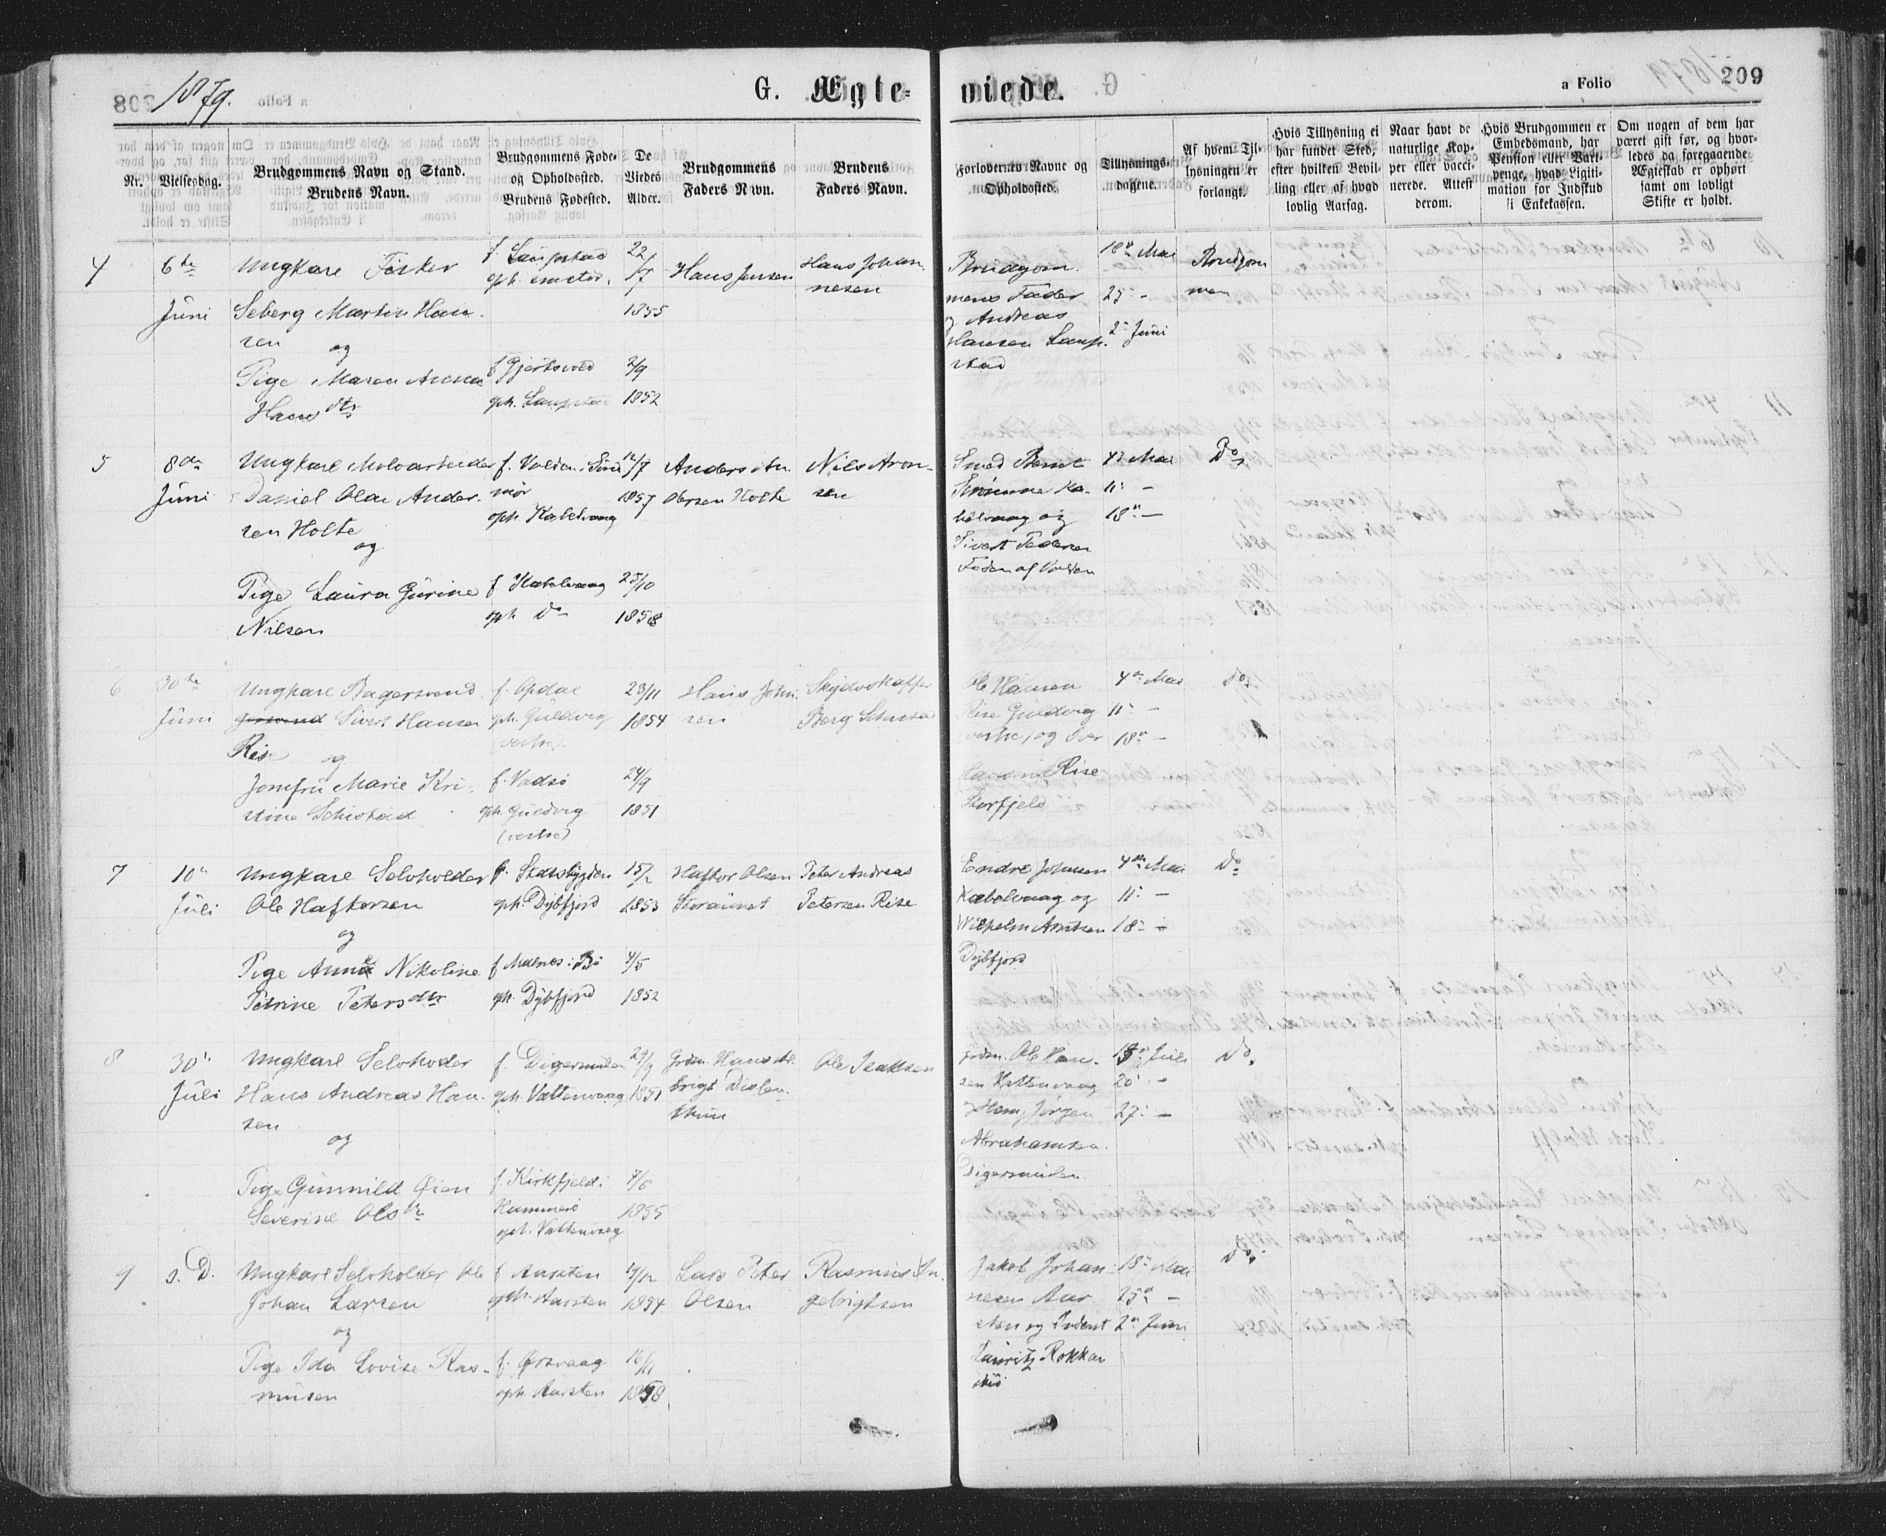 1879.
G. Ægteviede.
a Folio 209
Nr.
Vielsesdag.
Brudgommens Navn og Stand.
Brudens Navn.
Brudgommens Føde-
og Opholdssted.
Brudens Fødested.
De
Viedes
Alder.
Brudgommens
Faders Navn.
Brudens
Faders Navn.
Forlovernes Navne og
Opholdssted.
Tillysnings-
dagene.
Af hvem Til-
lysningen er
forlangt.
Hvis Tillysning ei
har fundet Sted,
efter hvilken Bevil-
ling eller af hvad
lovlig Aarsag.
Naar havt de
naturlige Kop-
per eller vacci-
nerede. Attest
derom.
Hvis Brudgommen er
Embedsmand, har
Pension eller Vart-
penge, hvad Legiti-
mation for Indskud
i Enkekassen.
Om nogen af dem har
været gift før, og hvor-
ledes da foregaaende
Ægteskab er ophørt
samt om lovligt
Skifte er holdt.
4
6te
Juni
Ungkarl Fisker
Seberg Martin Han-
sen
og
Pige Maren Anna
Hansdtr
f. Laupstad
oph. smsted.
f. Gjertsvold
oph. Laupstad
22/7
1855
2/9
1852
Hans Jensen
Hans Johan-
nesen
Brudgom-
mens Fader
og Andreas
Hansen Laup-
stad
18de Mai
25 -
2 Juni
Brudgom
men
5
8de
Juni
Ungkarl Malerarbeider
Daniel Olai Ander-
sen Holte
og
Pige Laura Gurine
Nilsen
f. Volden i Sønd
mør
oph. Kabelvaag
f. Kabelvaag
oph. Do
12/7
1857
25/10
1858
Anders An
dersen Holte
Nils Aron-
sen
Smed Bernt
Strømme Ka-
belvaag og
Sivert Pedersen
Foden af Volden
4 Mai
11 -
18 -
Do
6
30te
Juni
Ungkarl Bagersvend
Sivert Hansen
Rise
og
Jomfru Marie Kri-
stine Schistad
f. Opdal
oph. Guldvig
(vestre)
f. Vadsø
oph. Guldvig
(vestre)
23/11
1854
24/9
1851
Hans John
sen
Skydsskaffer
Berg Schistad
Ole Hansen
Rise Guldvig
(vestre) og Iver
Rise
Storfjeld
4de Mai
11 -
18 -
Do
7
10de
Juli
Ungkarl Selvholder
Ole Haftorsen
og
Pige Anna Nikoline
Petrine Petersdtr
f. Stadsbygden
oph. Dybfjord
f. Malnes i Bø
oph. Dybfjord
15/2
1853
4/5
1852
Haftor Olsen
Storaunet
Peter Andreas
Petersen Rise
Endre Johnsen
Kabelvaag og
Wilhelm Arntsen
Dybfjord
4de Mai
11 -
18 -
Do
8
30te
Juli
Ungkarl Selvhoder
Hans Andreas Han-
sen
og
Pige Gunnild Øien
Severine Olsdtr
f. Digermulen
oph. Vattenvaag
f. Kirkfjeld i
oph. Vattenvaag
29/9
1851
7/6
1855
Ole Isaksen
Ole Han-
sen Vattenvaag
og Jørgen
Abrahamsen
Digermulen
13 Juli
20 -
27 -
Do
9
s. D.
Ungkarl Selvholder Ole
Johan Larsen
og
Pige Ida Lovise Ras-
musen
f. Aarsten
oph. Aarsten
f. Ørsvaag
oph. Aarsten
1854
16/11
1858
Lars Peter
Olsen
Rasmus In-
gebrigtsen
Jakob Johan-
nesen Aar-
sten og
Lauritz Rokkan
18de Mai
25de -
2den Juni
Do